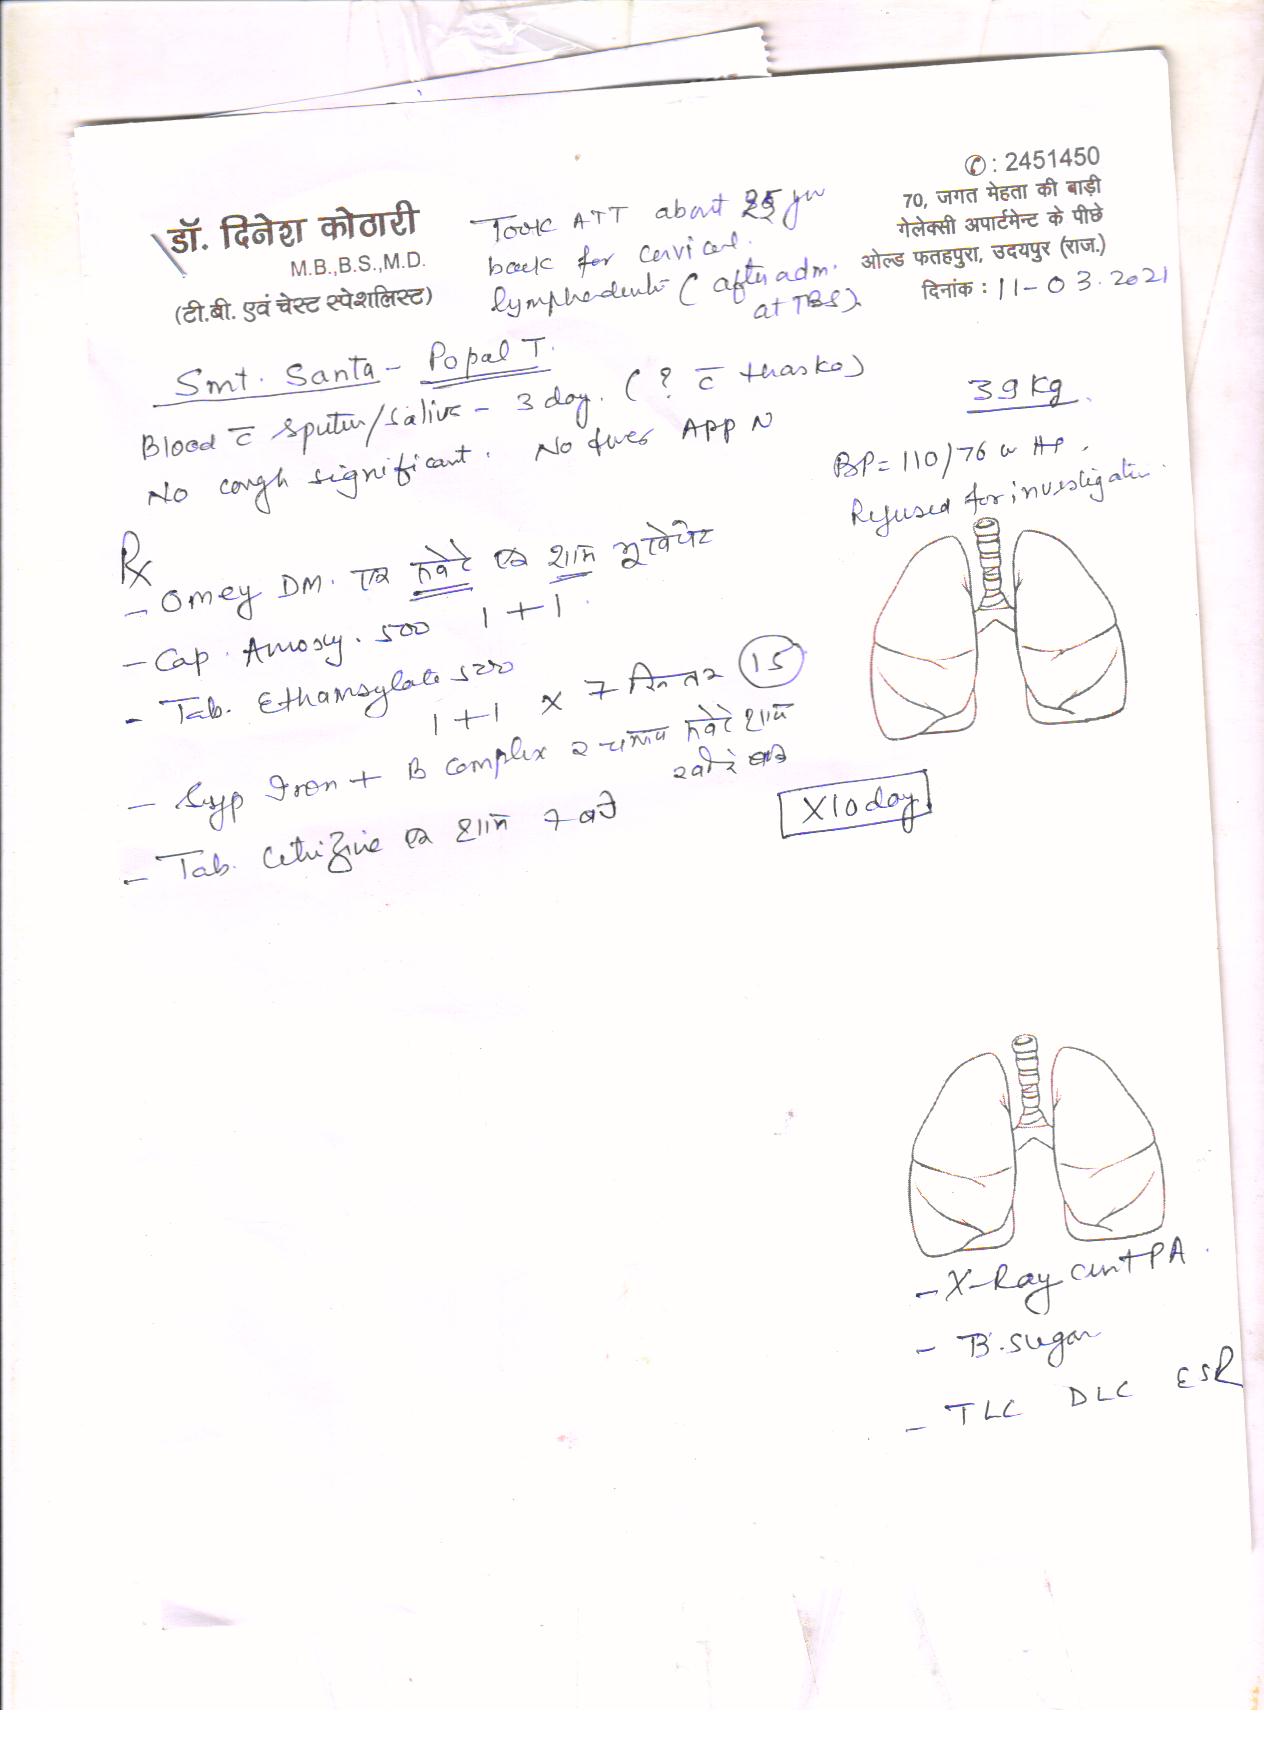 ✆: 2451450
70, जगत मेहता की बाड़ी
गेलेक्सी अपार्टमेन्ट के पीछे
ओल्ड फतहपुरा, उदयपुर (राज.)
दिनांक : 11-03.2021
डॉ. दिनेश कोठारी
M.B.,B.S.,M.D.
(टी.बी. एवं चेस्ट स्पेशलिस्ट)
Took ATT about 25 yrs
back for cervical
(after adm.
at TBS)
Smt. Santa - Popal T.
39 kg
Blood c̄ sputum/saliva - 3 day. (? c̄ thasko)
No cough significant. No fever APP N
BP = 110/76 HP.
Refused for investigation.
Rx
- Omey DM. एक सवेरे एक शाम भूखे पेट
- Cap. Amoxy. 500 1+1.
- Tab. Ethamsylate 500
1+1 x 7 दिन तक 15
- Syp Iron + B complex 2 चम्मच सवेरे शाम
- Tab. Cetrizine एक शाम 7 बजे
X10 day
- X-Ray PA.
- B. sugar
- TLC DLC ESR